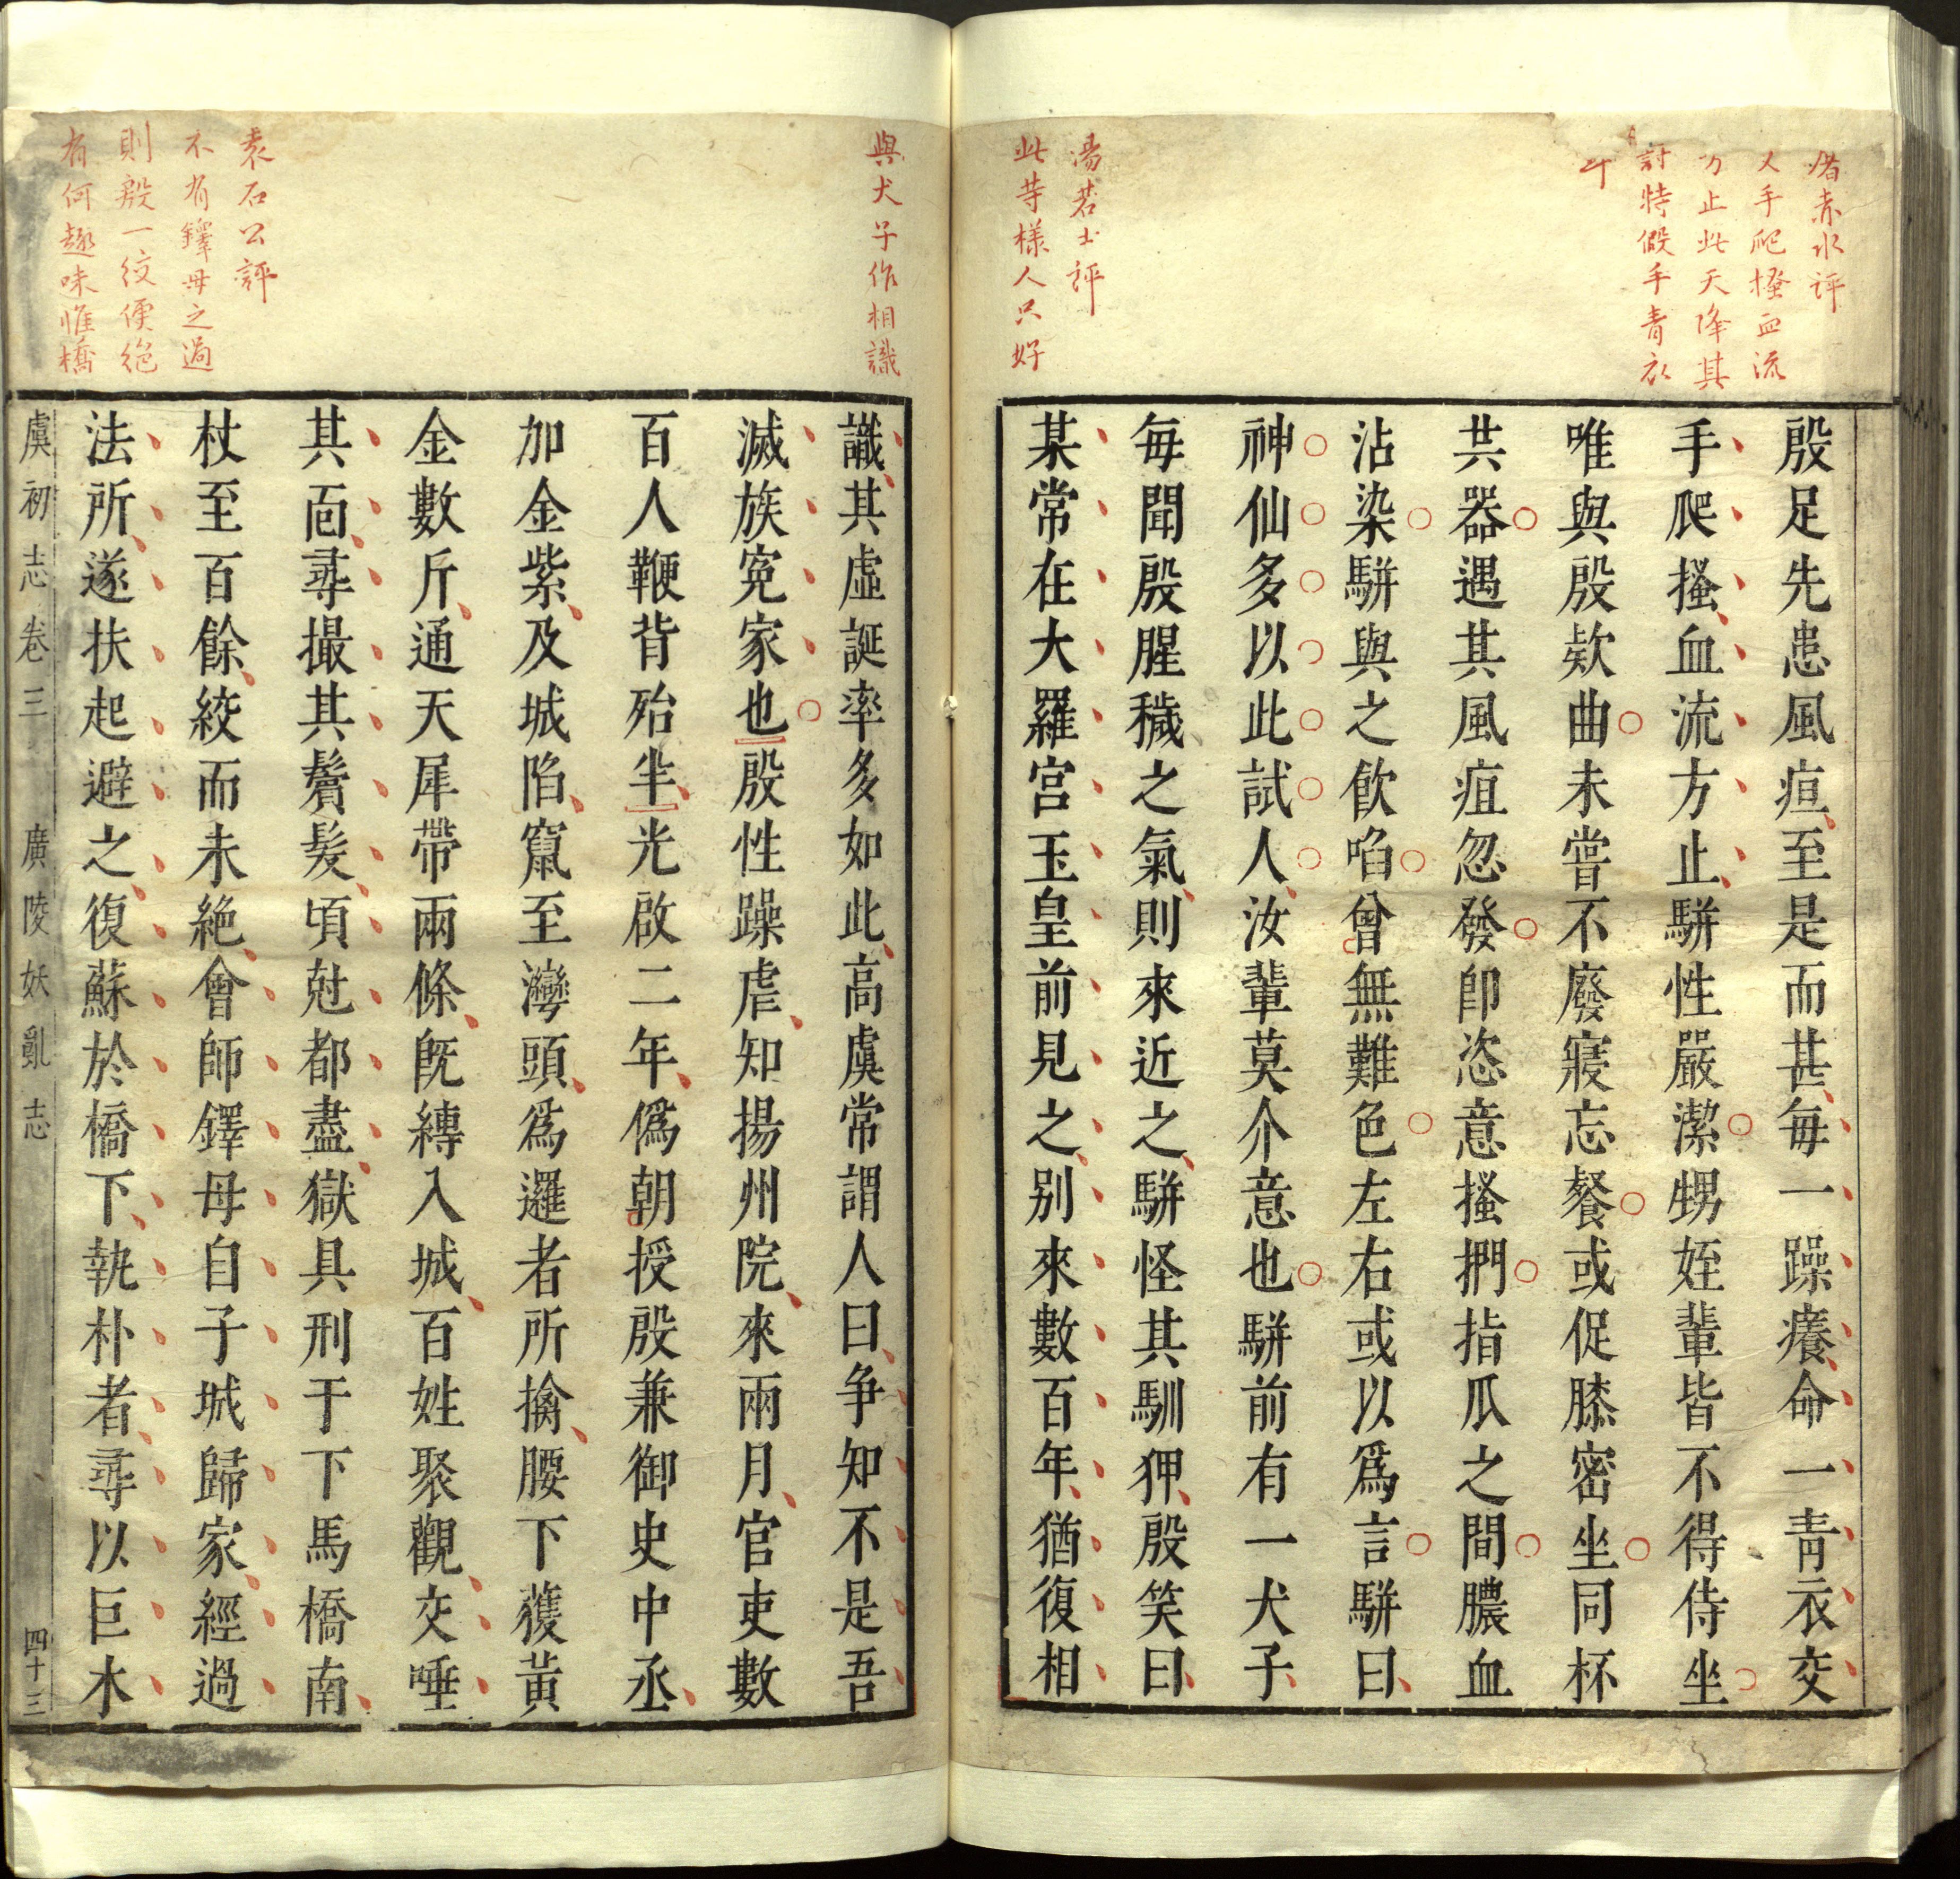 屠赤水評
又手爬搔血流
方止此天降其
討特假手青衣
耳
湯若士評
此等樣人只好
殷足先患風疽至是而甚每一躁癢命一靑衣交
手爬搔血流方止駢性嚴潔甥姪輩皆不得侍坐
唯與殷欵曲未甞不廢寢忘餐或促膝密坐同杯
共器遇其風疽忽發卽恣意搔捫指瓜之間膿血
沾染駢與之飮啗曾無難色左右或以爲言駢曰
神仙多以此試人汝輩莫介意也駢前有一犬子
每聞殷腥穢之氣則來近之駢怪其馴狎殷笑曰
某常在大羅宮玉皇前見之别來數百年猶復相
與犬子作相識
袁石公評
不有鐸母之過
則殷一絞便絕
有何趣味惟橋
識其虛誕率多如此高虞常謂人曰爭知不是吾
滅族寃家也殷性躁虐知揚州院來兩月官吏數
百人鞭背殆半光啟二年僞朝授殷兼御史中丞
加金紫及城陷竄至灣頭爲邏者所擒腰下獲黄
金數斤通天犀帶兩條旣縛入城百姓聚觀交唾
其面尋撮其鬢髮頃尅都盡獄具刑于下馬橋南
杖至百餘絞而未絶會師鐸母自子城歸家經過
法所遂扶起避之復蘇於橋下執朴者尋以巨木
虞初志卷三 廣陵妖亂志 四十三